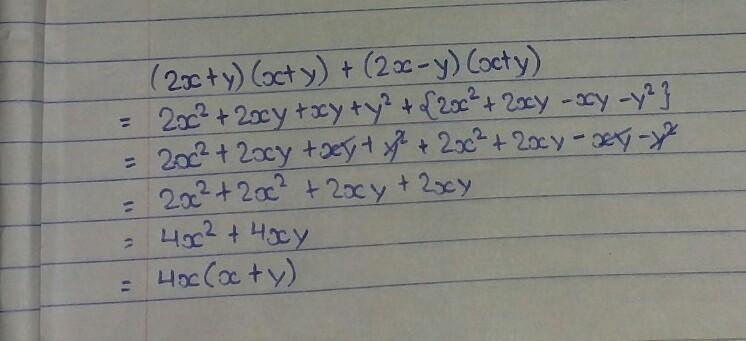 (2x+y)(x+y) + (2x-y)(x+y)
= 2x² + 2xy + xy + y² + {2x² + 2xy - xy - y²}
= 2x² + 2xy + xy + y² + 2x² + 2xy - xy - y²
= 2x² + 2x² + 2xy + 2xy
= 4x² + 4xy
= 4x(x+y)